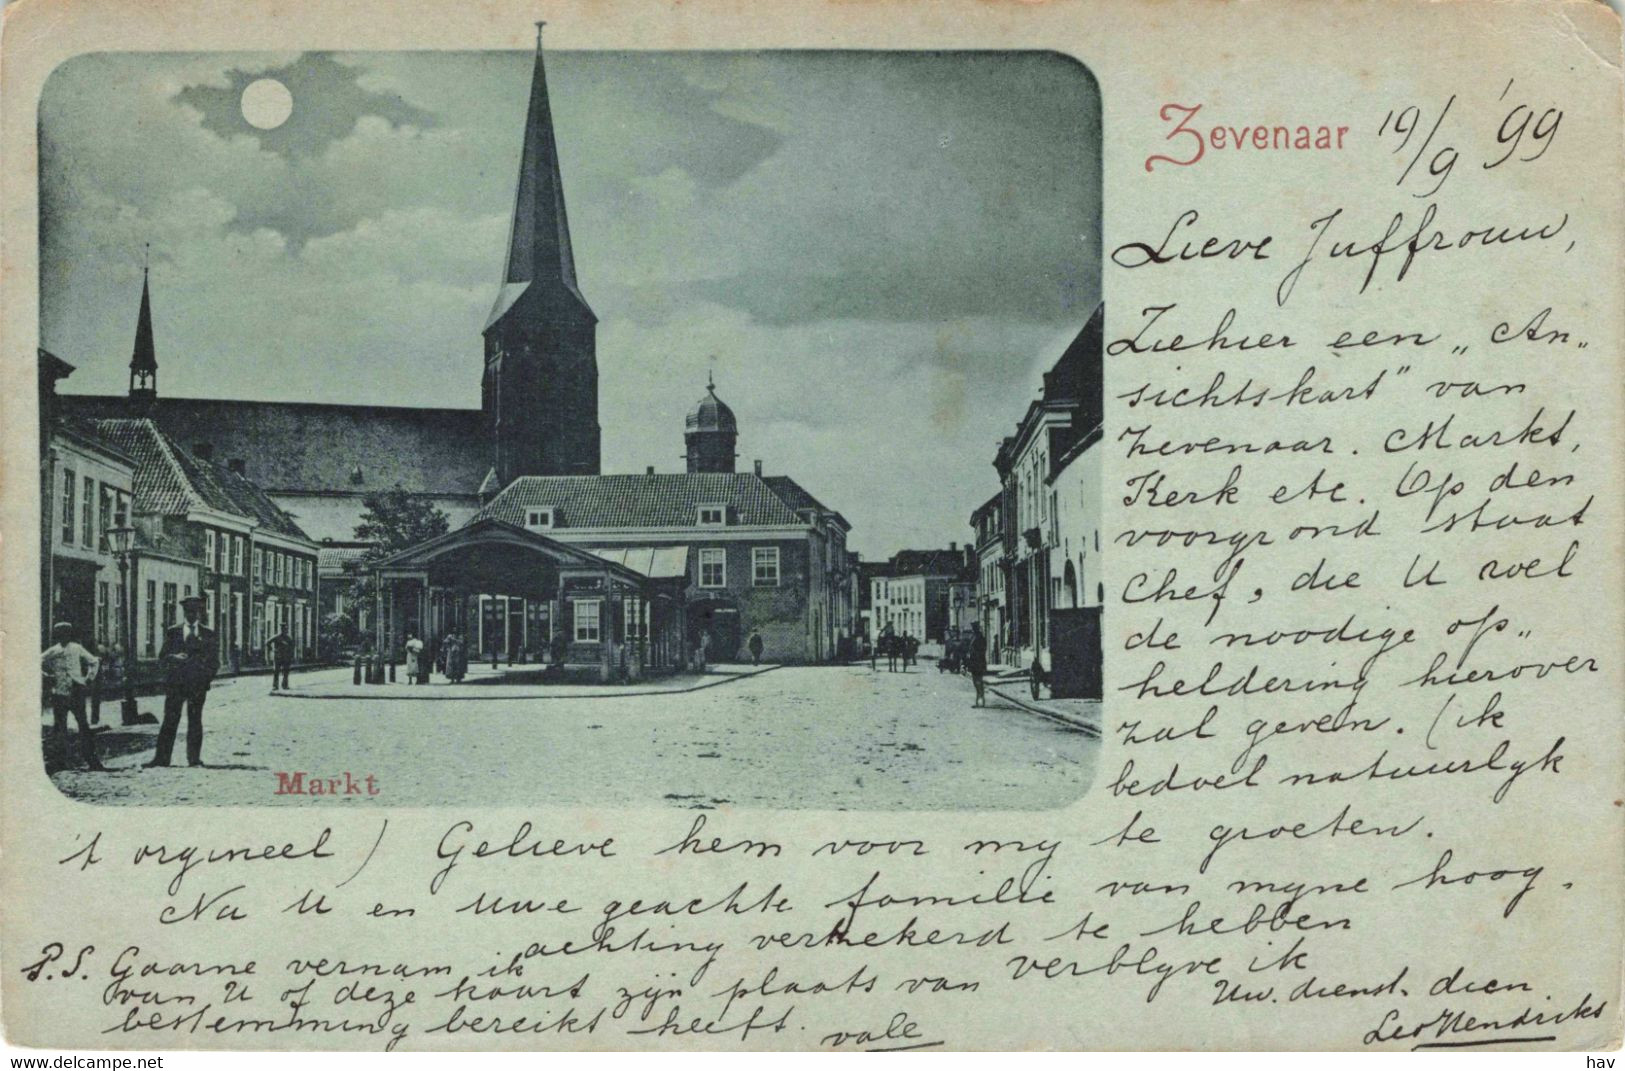 Zevenaar 19/9 '99
Lieve Juffrouw,
Ziehier een „An„
sichtskart" van
Zevenaar. Markt,
Kerk etc. Op den
voorgrond staat
Chef, die U wel
de noodige op„
heldering hierover
zal geven. (ik
bedoel natuurlyk
Markt
't orgineel) Gelieve hem voor my te groeten.
Na U en uwe geachte familie van myne hoog„
achting verzekerd te hebben
verblyve ik
Uw. dienst. dien.
Leo Hendriks
P.S. Gaarne vernam ik
van U of deze kaart zijn plaats van
bestemming bereikt heeft. vale
hav